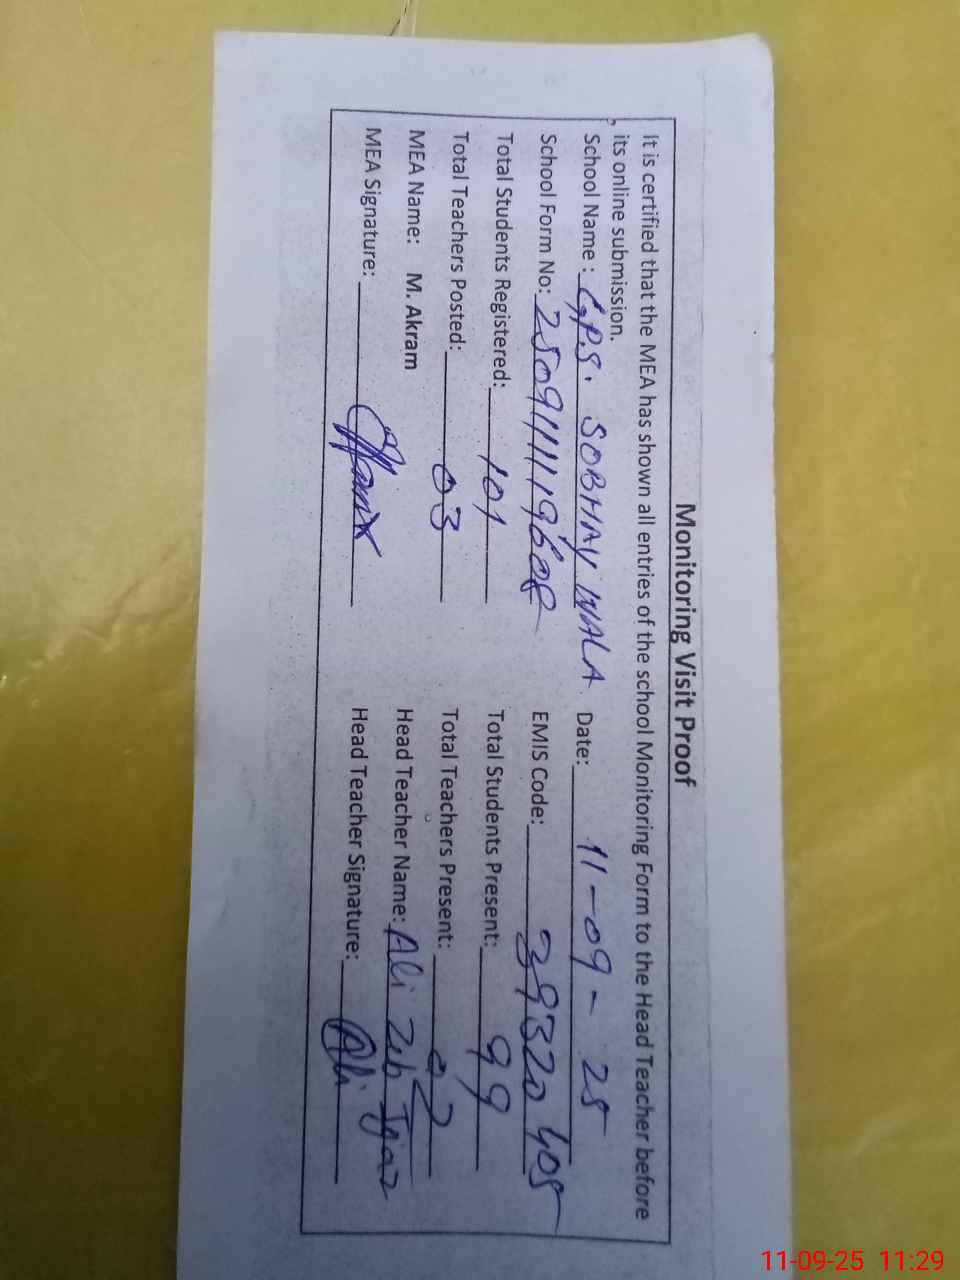 Monitoring Visit Proof
It is certified that the MEA has shown all entries of the school Monitoring Form to the Head Teacher before
its online submission.
School Name : G.P.S. SOBHAY WALA Date: 11-09-25
School Form No: 250911119608 EMIS Code: 39320405
Total Students Registered: 101 Total Students Present: 99
Total Teachers Posted: 03 Total Teachers Present: 02
MEA Name: M. Akram Head Teacher Name: Ali Zeb Ijaz
MEA Signature: Head Teacher Signature: Ali
11-09-25 11:29